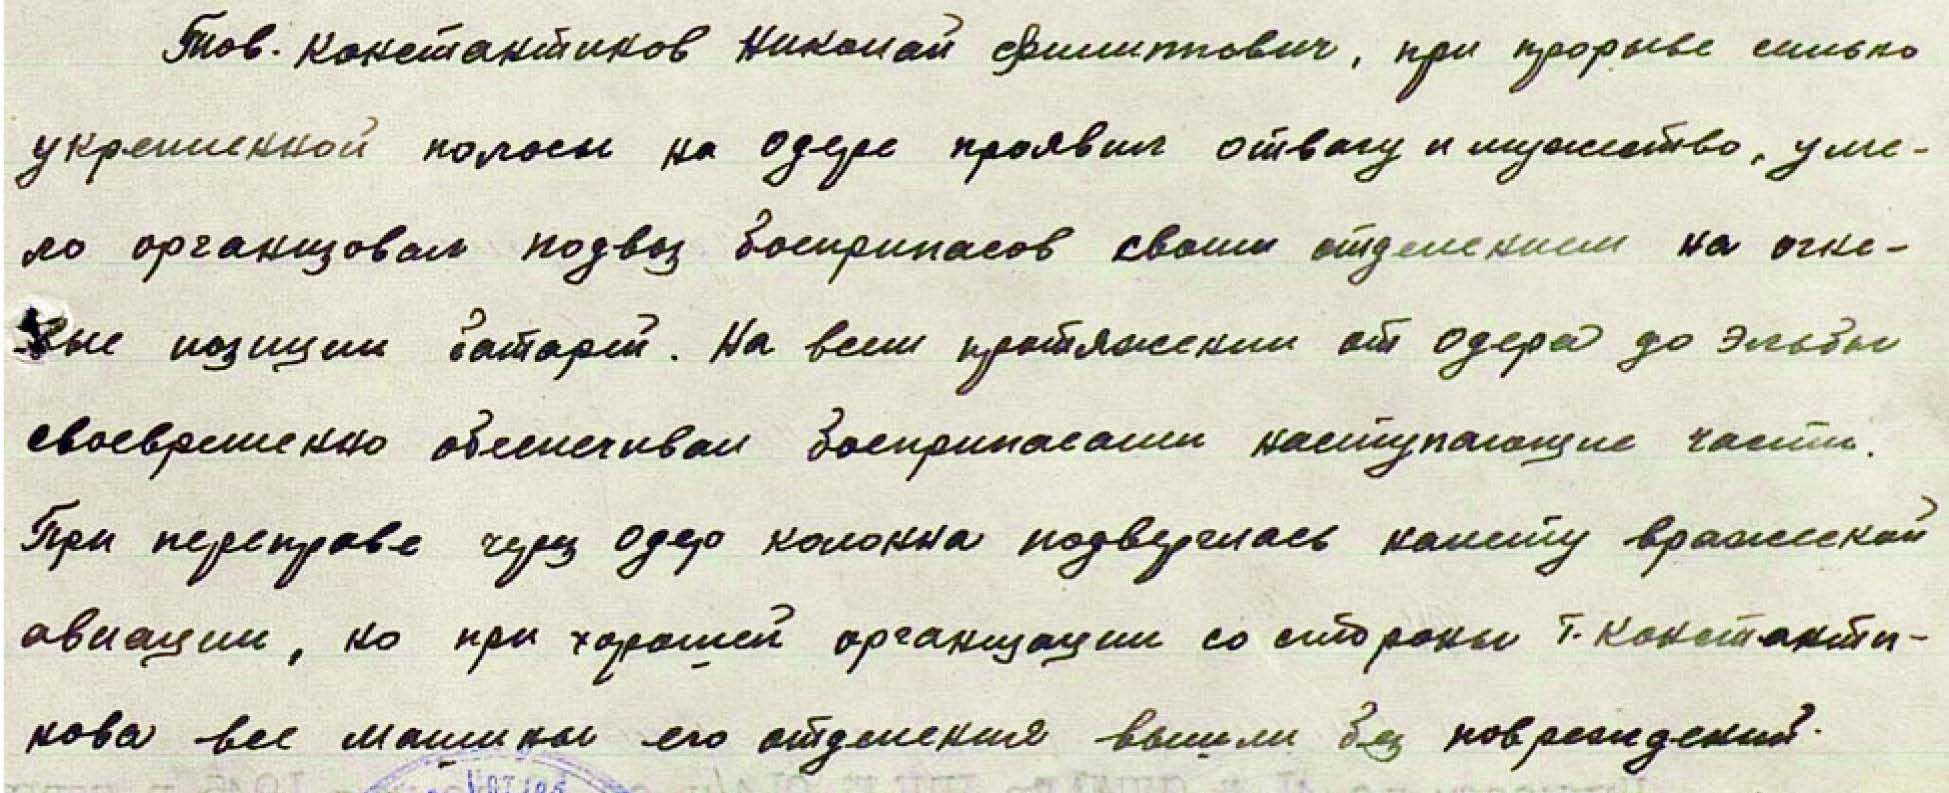 Тов. Константинов Николай Филиппович, при прорыве сильно
укрепленной полосы на Одере проявил отвагу и мужество, уме-
ло организовал подвоз боеприпасов своим отделением на огне-
вые позиции батарей. На всем протяжении от Одера до Эльбы
своевременно обеспечивал боеприпасами наступающие части.
При переправе через Одер колонна подверглась налету вражеской
авиации, но при хорошей организации со стороны т. Константи-
нова все машины его отделения вышли без повреждений.